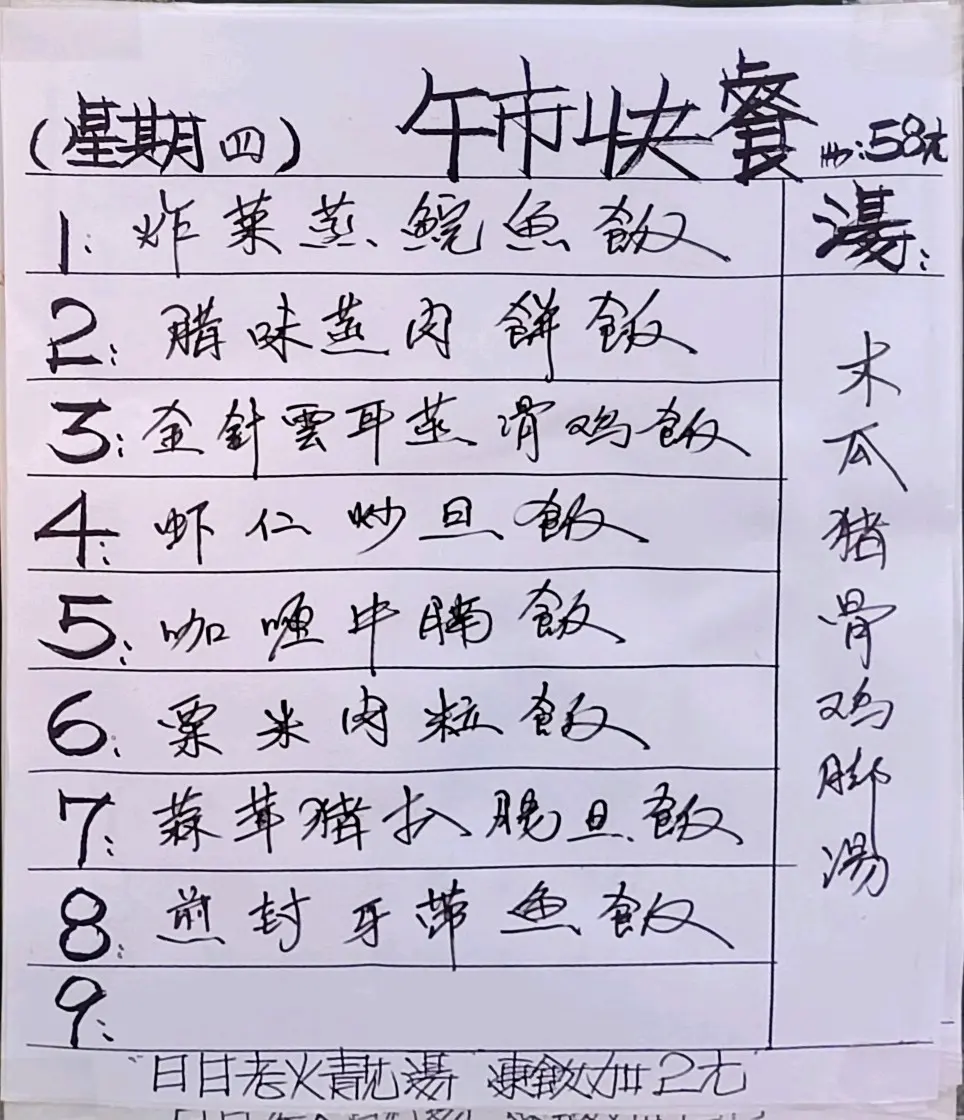 (星期四) 午市快餐 58元
1: 炸菜蒸鯇魚飯
2: 腊味蒸肉餅飯
3: 金針雲耳蒸滑鸡飯
4: 虾仁炒旦飯
5: 咖喱牛腩飯
6: 粟米肉粒飯
7: 蒜茸猪扒腸旦飯
8: 煎封牙带魚飯
9:
湯:
木瓜猪骨鸡脚湯
日日老火靚湯 凍飲加2元